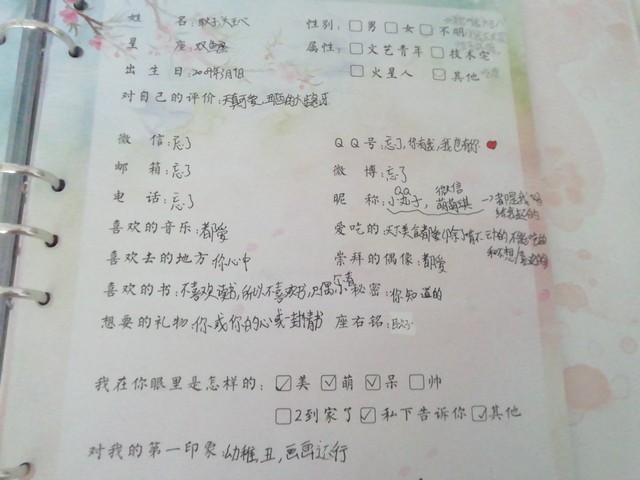 姓 名： 性别：□男□女□不明
星 座：双鱼座 属性：□文艺青年□技术宅
出生日：2009年1月1日 □火星人□其他
对自己的评价：天真可爱，
微 信：忘了 QQ号：忘了，你有我，我也有你
邮 箱：忘了 微 博：忘了
电 话：忘了 昵 称：QQ小丸子，微信萌萌琪→
喜欢的音乐：都爱 爱吃的：天下美食都爱
喜欢去的地方：你心中 崇拜的偶像：都爱
喜欢的书：不喜欢读书，所以不喜欢书，只偶尔看 秘密：你知道的
想要的礼物：你或你的心或一封情书 座右铭：
我在你眼里是怎样的：☑美☑萌☑呆□帅
□2到家了☑私下告诉你☑其他
对我的第一印象：幼稚，丑，画画还行